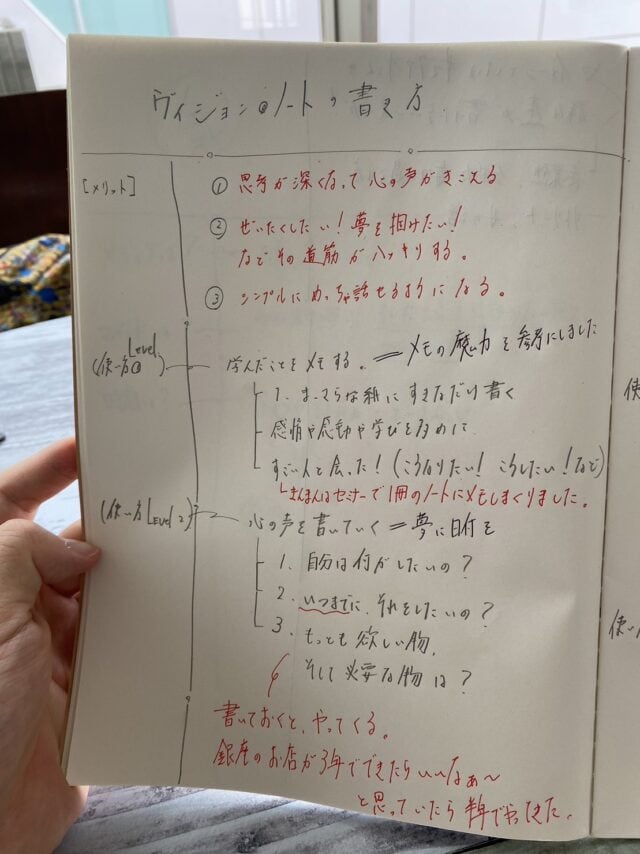 ヴィジョン@ノートの書き方
[メリット]
① 思考が深くなって心の声がきこえる
② ぜいたくしたい！夢を描けたい！
などその道筋がハッキリする。
③ シンプルにめっちゃ話せるようになる。
(使い方Level①)
学んだことをメモする。＝メモの魔力を参考にしました
1. まっさらな紙にすきなだけ書く
感情や感動や学びを多めに
すごい人と会った！(こうなりたい！こうしたい！など)
まんまんはセミナーで1冊のノートにメモしまくりました。
(使い方Level2)
心の声を書いていく＝夢に日付を
1. 自分は何がしたいの？
2. いつまでに、それをしたいの？
3. もっとも欲しい物、
そして必要な物は？
書いておくと、やってくる。
銀座のお店が3年でできたらいいなぁ〜
と思っていたら半年でやってきた。
使
使い方